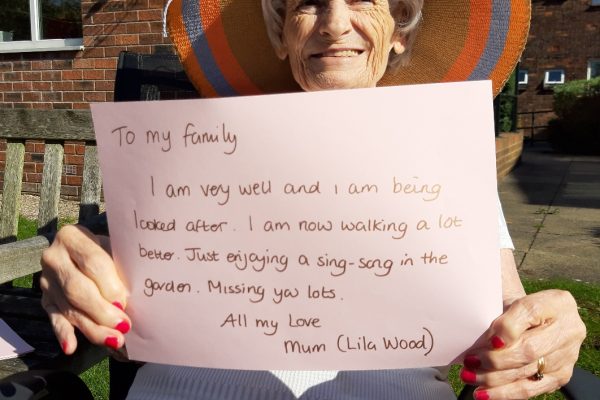 To my family
I am very well and I am being
looked after. I am now walking a lot
better. Just enjoying a sing-song in the
garden. Missing you lots.
All my Love
Mum (Lila Wood)